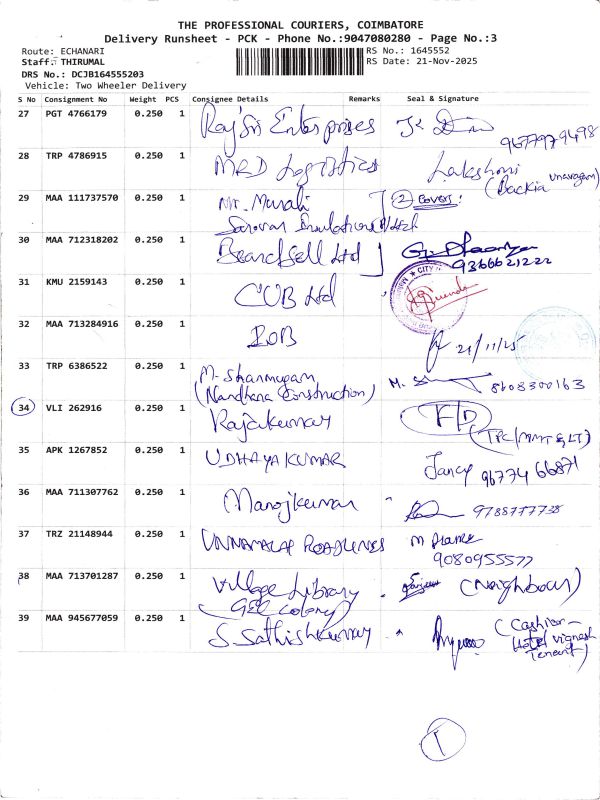 THE PROFESSIONAL COURIERS, COIMBATORE
Delivery Runsheet - PCK - Phone No.:9047080280 - Page No.:3
Route: ECHANARI
RS No.: 1645552
Staff: THIRUMAL
RS Date: 21-Nov-2025
DRS No.: DCJB164555203
Vehicle: Two Wheeler Delivery
S No Consignment No Weight PCS Consignee Details Remarks Seal & Signature
27 PGT 4766179 0.250 1 Raj Sri Enterprises
9677979498
28 TRP 4786915 0.250 1 MRD Logistics Lakshmi
(Backia
29 MAA 111737570 0.250 1 Mr. Murali (2) Covers:
30 MAA 712318202 0.250 1 Beardsell Ltd
9366621222
31 KMU 2159143 0.250 1 CUB Ltd
CITY
32 MAA 713284916 0.250 1 IOB
21/11/25
33 TRP 6386522 0.250 1 M. Shanmugam M.
8808300163
(Nandhana Construction)
34 VLI 262916 0.250 1 Rajakumar F/D
35 APK 1267852 0.250 1 UDHAYAKUMAR Jancy 96774 66871
36 MAA 711307762 0.250 1 Manojkumar 9788777738
37 TRZ 21148944 0.250 1 UNNAMALAI ROADLINES
9080955577
38 MAA 713701287 0.250 1 Village Library (Neighbour)
(GEE Colony)
39 MAA 945677059 0.250 1 S. Sathishkumar (Cashier -
Hotel Vignesh
Tenant)
1